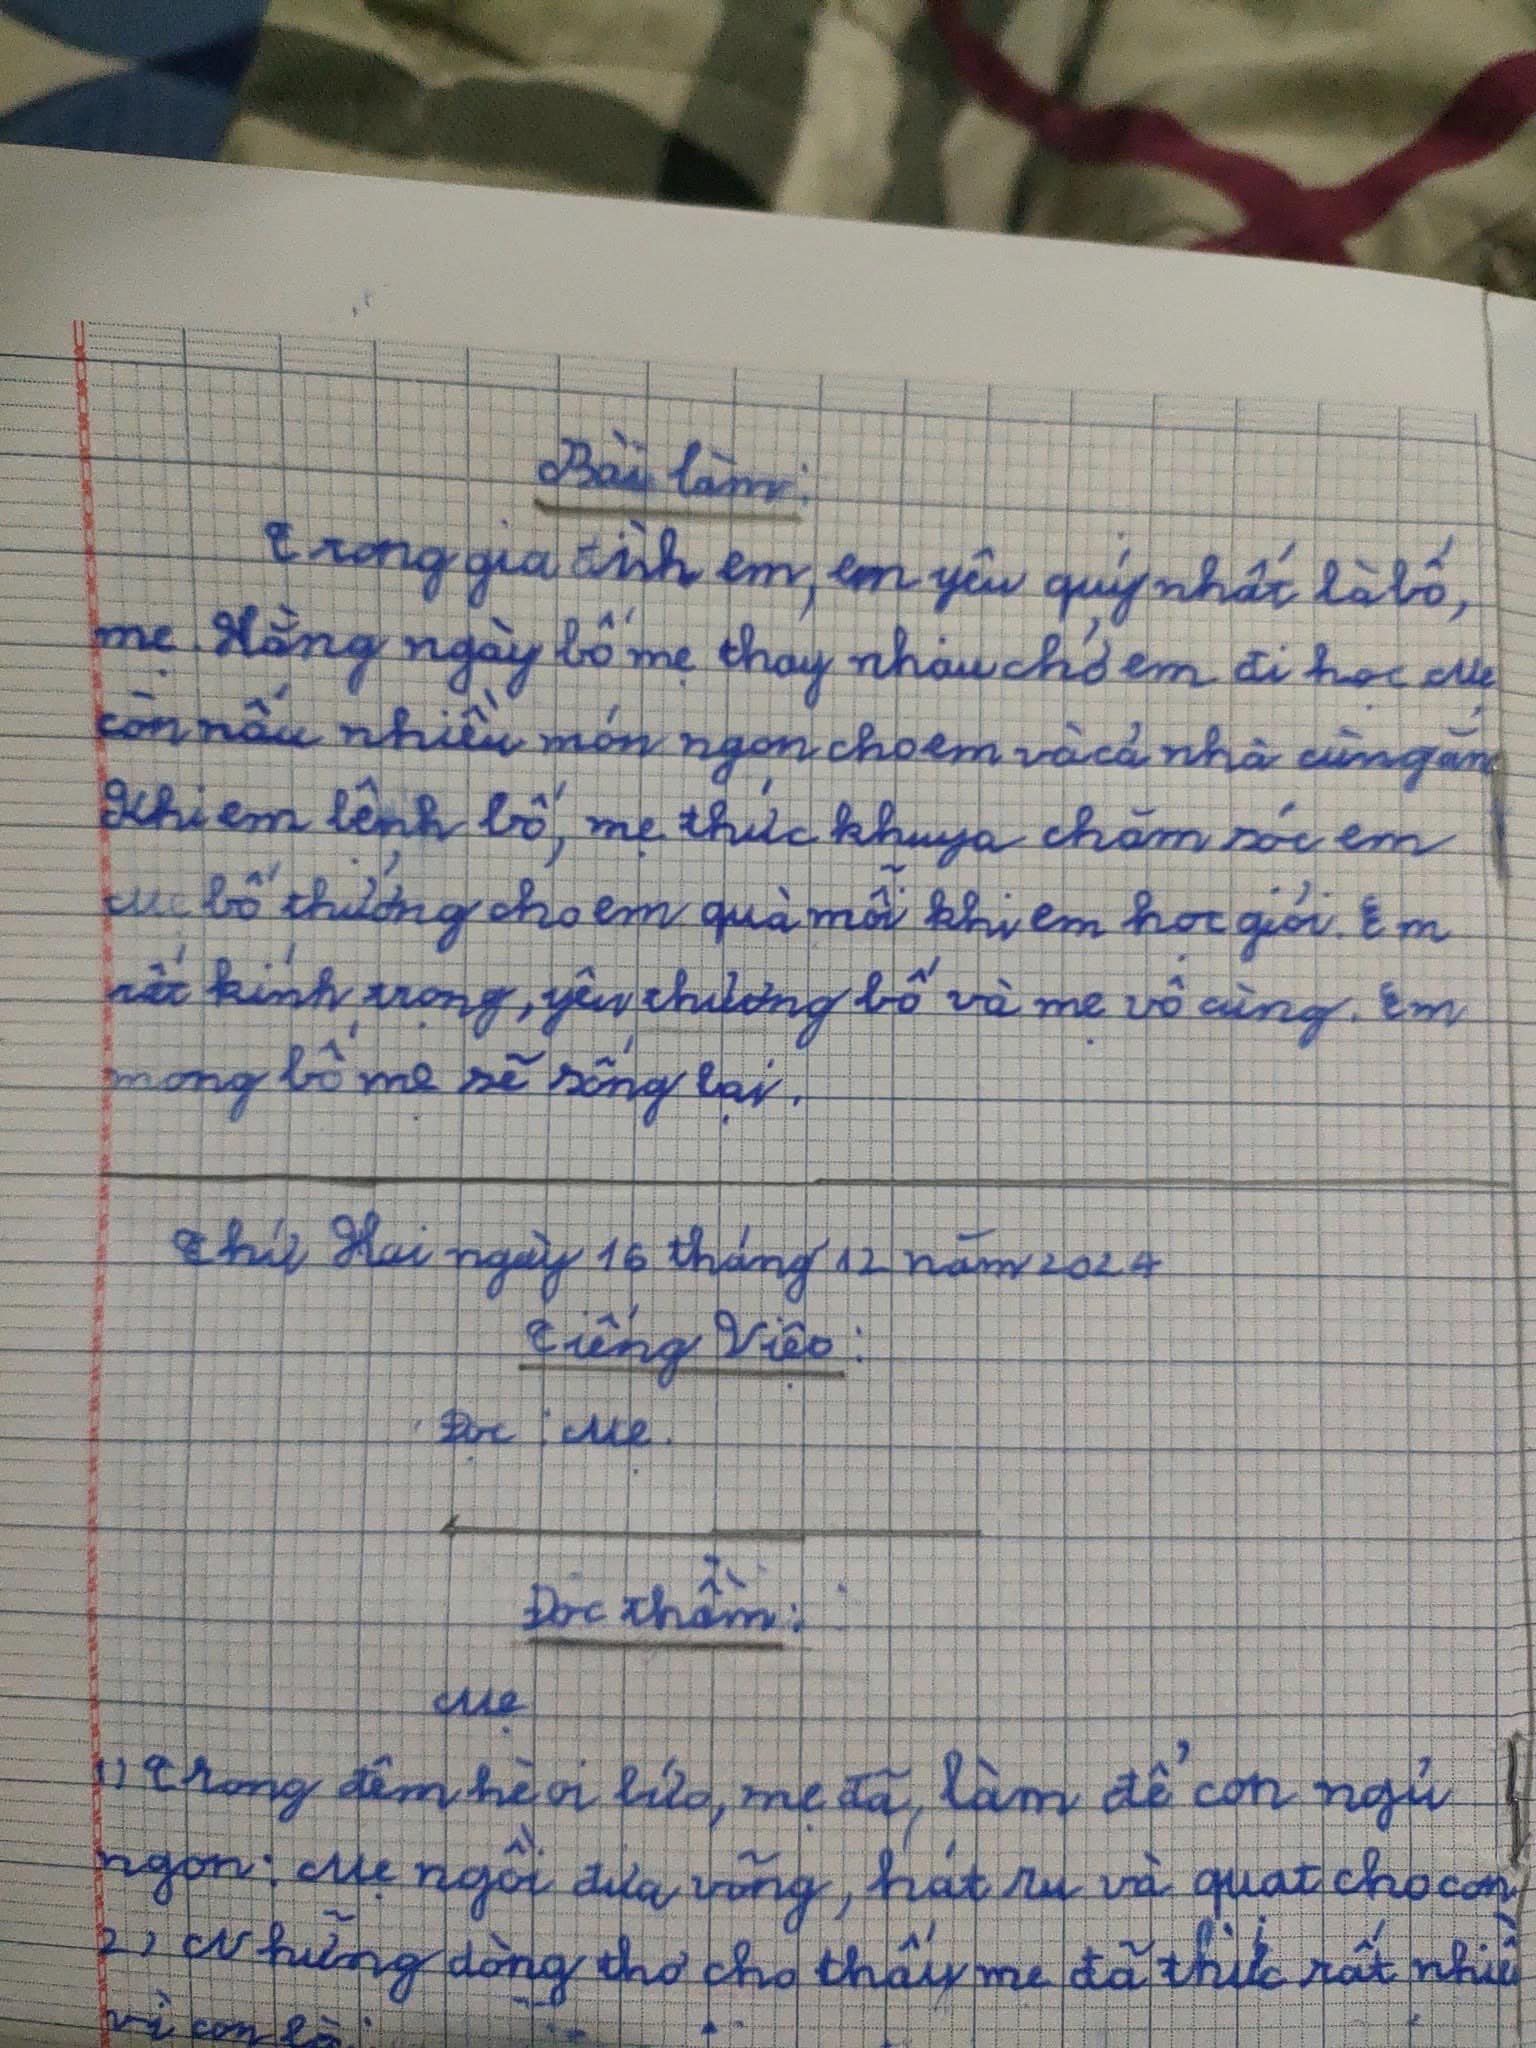 Bài làm:
Trong gia đình em, em yêu quý nhất là bố,
mẹ. Hằng ngày bố mẹ thay nhau chở em đi học Mẹ
còn nấu nhiều món ngon cho em và cả nhà cùng ăn
Khi em bệnh bố, mẹ thức khuya chăm sóc em
Mẹ bố thưởng cho em quà mỗi khi em học giỏi. Em
rất kính trọng, yêu thương bố và mẹ vô cùng. Em
mong bố mẹ sẽ sống lại.
Thứ Hai ngày 16 tháng 12 năm 2024
Tiếng Việt:
Đọc: Mẹ.
Đọc thầm:
Mẹ
1) Trong đêm hè oi bức, mẹ đã, làm để con ngủ
ngon: Mẹ ngồi đưa võng, hát ru và quạt cho con
2) Những dòng thơ cho thấy mẹ đã thức rất nhiều
vì con là: